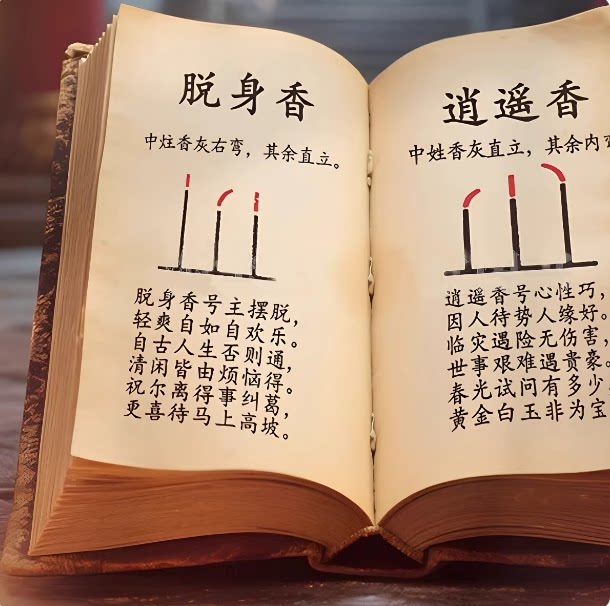 脱身香
中炷香灰右弯，其余直立。
脱身香号主摆脱，
轻爽自如自欢乐。
自古人生否则通，
清闲皆由烦恼得。
祝尔离得事纠葛，
更喜待马上高坡。
逍遥香
中姓香灰直立，其余内弯
逍遥香号心性巧，
因人待势人缘好。
临灾遇险无伤害，
世事艰难遇贵豪。
春光试问有多少
黄金白玉非为宝